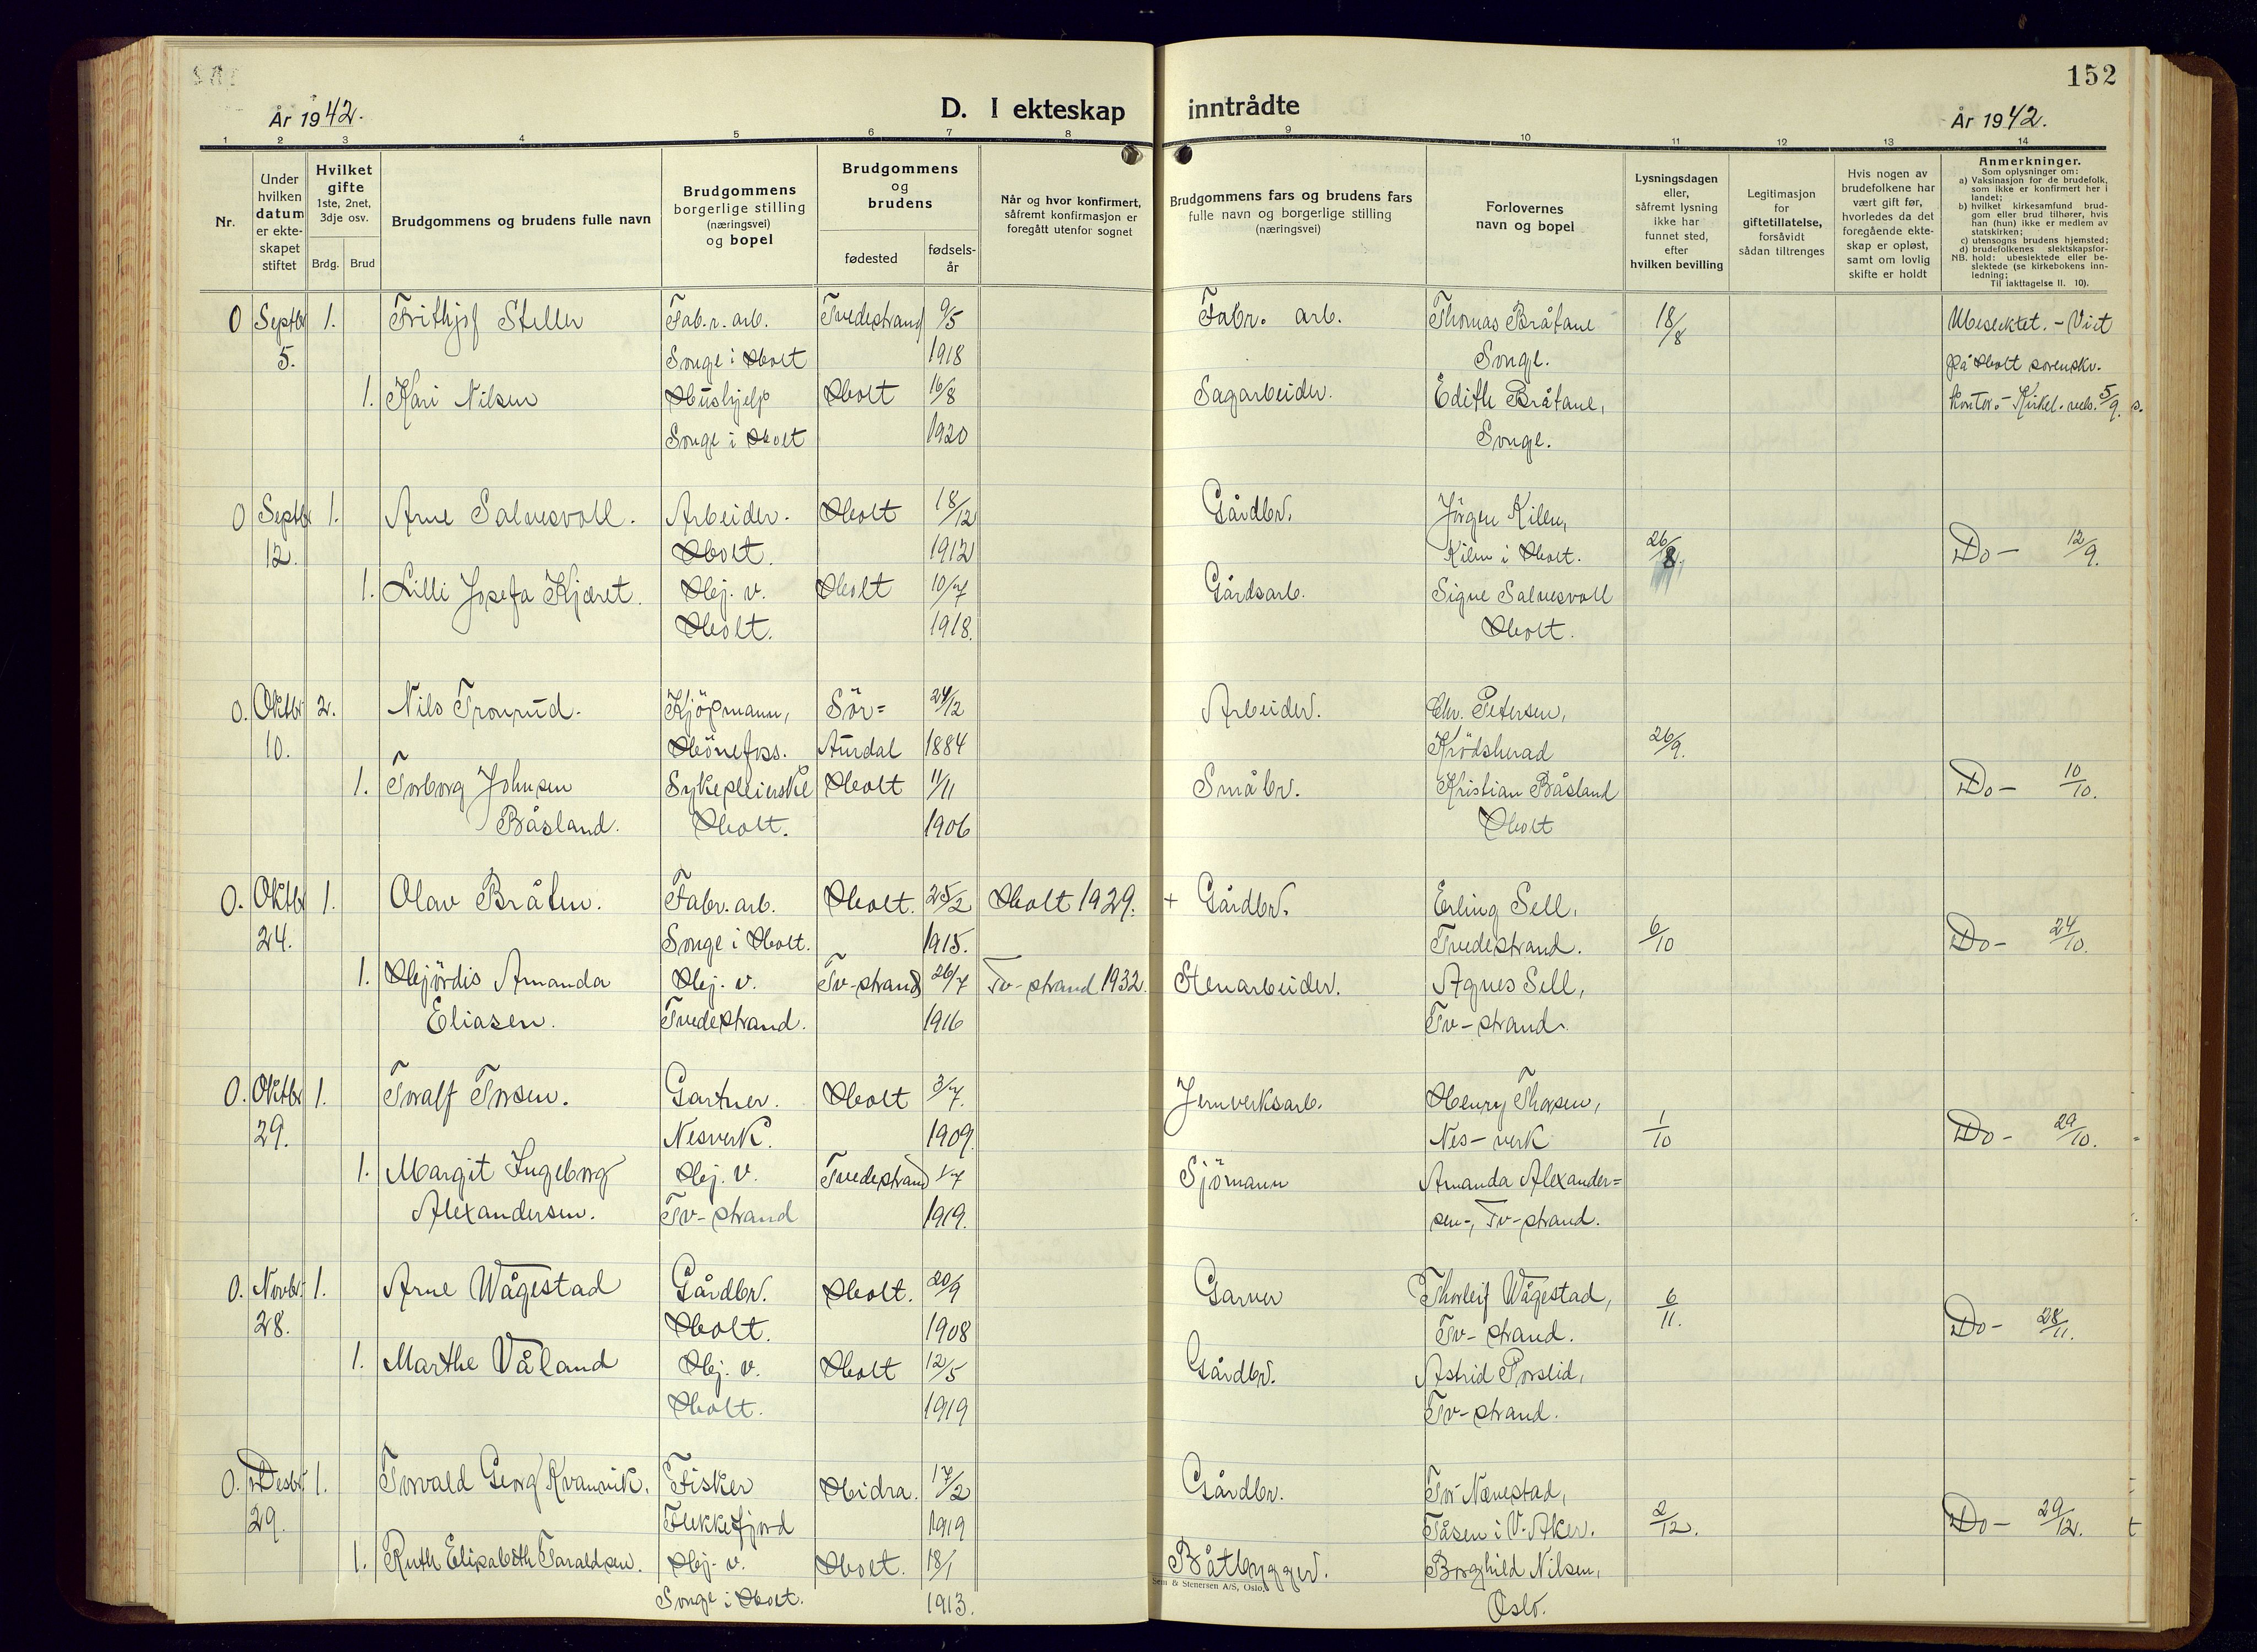 152
År 1942.
D. I ekteskap inntrådte
År 1942.
1 2 3 4 5 6 7 8 9 10 11 12 13 14
Nr.
Under hvilken datum er ekteskapet stiftet
Hvilket gifte 1ste, 2net, 3dje osv.
Brdg. Brud
Brudgommens og brudens fulle navn
Brudgommens borgerlige stilling (næringsvei) og bopel
Brudgommens og brudens
fødested
fødsels-år
Når og hvor konfirmert, såfremt konfirmasjon er foregått utenfor sognet
Brudgommens fars og brudens fars fulle navn og borgerlige stilling (næringsvei)
Forlovernes navn og bopel
Lysningsdagen eller, såfremt lysning ikke har funnet sted, efter hvilken bevilling
Legitimasjon for giftetillatelse, forsåvidt sådan tiltrenges
Hvis nogen av brudefolkene har vært gift før, hvorledes da det foregående ekteskap er opløst, samt om lovlig skifte er holdt
Anmerkninger.
Som oplysninger om:
a) Vaksinasjon for de brudefolk, som ikke er konfirmert her i landet;
b) hvilket kirkesamfund brudgom eller brud tilhører, hvis han (hun) ikke er medlem av statskirken;
c) utensogns brudens hjemsted;
d) brudefolkenes slektskapsforhold: ubeslektede eller beslektede (se kirkebokens innledning;
NB.
Til iakttagelse II. 10).
0 Septbr 1. Frithjof Steller Fabr. arb. Tvedestrand 9/5 Fabr. arb. Thomas Bråtane 18/8 Ubeslektet. - Viet
5. Songe i Holt 1918 Songe. på Holt sorenskr.
1. Kari Nilsen Hushjelp Holt 16/8 Sagarbeider. Edith Bråtane, kontor. - Kirkel. vels. 5/9. s.
Songe i Holt 1920 Songe.
0 Septbr 1. Arne Salvesvoll. Arbeider. Holt 18/12 Gårdbr. Jörgen Kilen,
12. Holt. 1912 Kilen i Holt. 26/8. Do - 12/9.
1. Lilli Josefa Kjæret. Hj. v. Holt 10/7 Gårdsarb. Signe Salvesvoll
Holt. 1918. Holt.
0. Oktbr 2. Nils Tronrud. Kjöpmann, Sör= 24/12 Arbeider. Chr. Petersen,
10. Hönefoss. Aurdal 1884 Krödsherad 26/9.
1. Torborg Johnsen Sykepleierske Holt 11/11 Småbr. Kristian Båsland Do - 10/10.
Båsland. Holt. 1906 Holt
0. Oktbr 1. Olav Bråten. Fabr. arb. Holt. 25/2 Holt 1929. + Gårdbr. Erling Sell,
24. Songe i Holt. 1915. Tvedestrand. 6/10 Do - 24/10.
1. Hjördis Amanda Hj. v. Tv-strand 26/7 Tv-strand 1932. Stenarbeider. Agnes Sell,
Eliasen. Tvedestrand. 1916 Tv-strand.
0. Oktbr 1. Toralf Torsen. Gartner. Holt 3/7. Jernverksarb. Henry Thorsen,
29. Nesverk. 1909. Nes-verk 1/10 Do - 29/10.
1. Margit Ingeborg Hj. v. Tvedestrand 1/7 Sjömann Amanda Alexander=
Alexandersen. Tv-strand 1919. sen-, Tv-strand.
0. Novbr. 1. Arne Wågestad Gårdbr. Holt. 20/9 Garver Thorleif Wågestad, 6/11.
28. Holt. 1908 Tv-strand. Do - 28/11.
1. Marthe Våland Hj. v. Holt 12/5 Gårdbr. Astrid Porslid,
Holt. 1919 Tv-strand.
0. Desbr 1. Torvald Georg Kvanvik. Fisker Hidra. 17/2 Gårdbr. Tor Nænestad,
29. Flekkefjord 1919 Tåsen i V. Aker. 2/12. Do - 29/12. t
1. Ruth Elisabeth Taraldsen. Hj. v. Holt. 18/1 Båtbygger. Borghild Nilsen,
Sem & Stenersen A/S, Oslo.
Songe i Holt. 1913. Oslo.